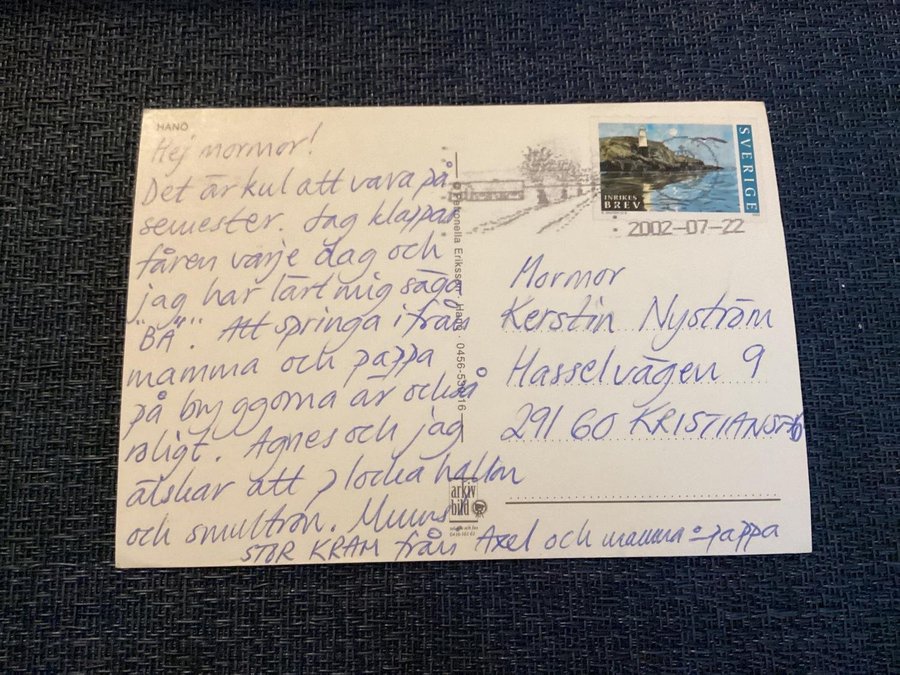 HANÖ
Hej mormor!
Det är kul att vara på
semester. Jag klappar
fåren varje dag och
jag har lärt mig säga
"BÄ". Att springa ifrån
mamma och pappa
på bryggorna är också
roligt. Agnes och jag
älskar att plocka hallon
och smultron. Mums
STOR KRAM från Axel och mamma o pappa
Petronella Eriksson Hanö 0456-53
arkiv
bild
SVERIGE
INRIKES
BREV
2002-07-22
Mormor
Kerstin Nyström
Hasselvägen 9
291 60 KRISTIANSTAD